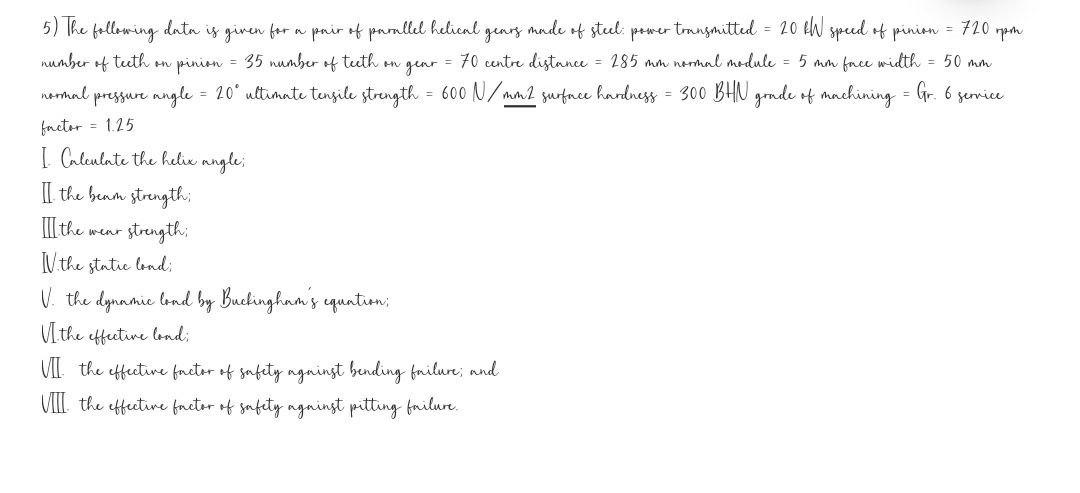 5) The following data is given for a pair of parallel helical gears made of steel: power transmitted = 20 kW speed of pinion = 720 rpm
number of teeth on pinion = 35 number of teeth on gear = 70 centre distance = 285 mm normal module = 5 mm face width = 50 mm
normal pressure angle = 20° ultimate tensile strength = 600 N/mm2 surface hardness = 300 BHN grade of machining = Gr. 6 service
factor = 1.25
I. Calculate the helix angle;
II. the beam strength;
III.the wear strength;
IV.the static load;
V. the dynamic load by Buckingham's equation;
VI.the effective load;
VII. the effective factor of safety against bending failure; and
VIII. the effective factor of safety against pitting failure.